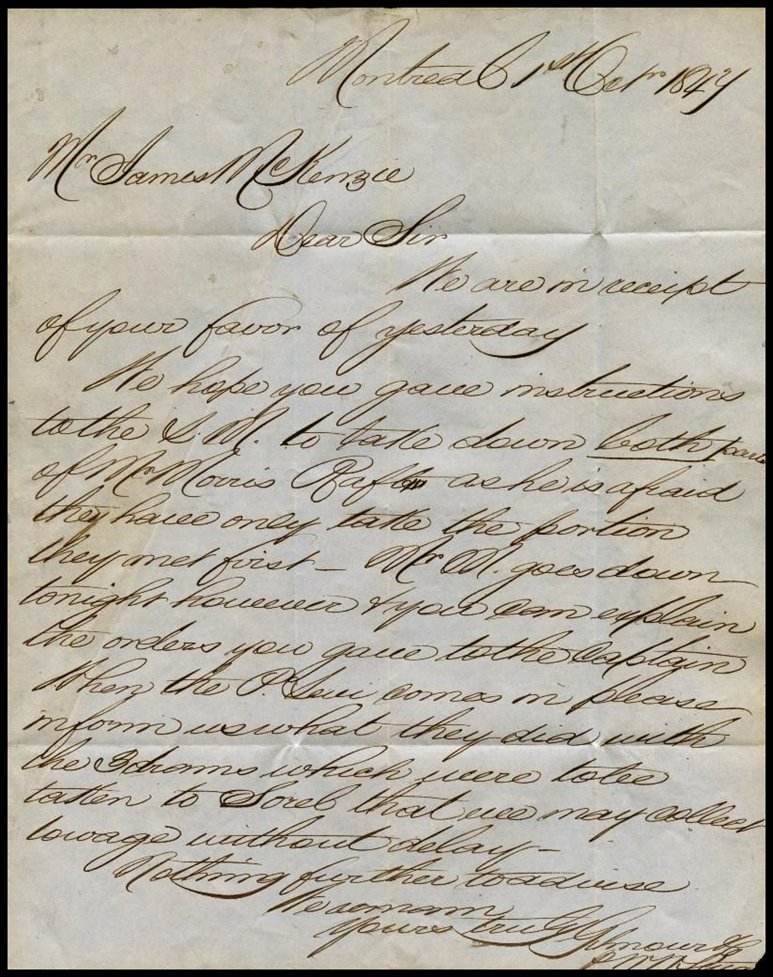 Montreal 1st Octr 1847
Mr James McKenzie
Dear Sir
We are in receipt
of your favor of yesterday
We hope you gave instructions
to the S. M. to take down both
of Mr Morris Raft as he is afraid
they have only take the portion
they met first – Mr M. goes down
tonight however & you can explain
the orders you gave to the Captain
When the P. Levi comes in please
inform us what they did with
the 3 drams which were to be
taken to Sorel that we may collect
towage without delay –
Nothing further to advise
We remain
Yours truly